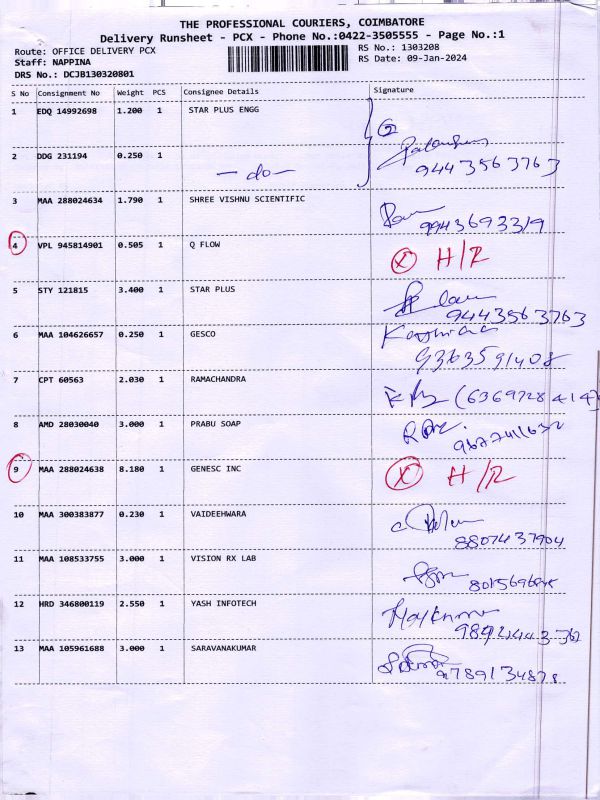 THE PROFESSIONAL COURIERS, COIMBATORE
Delivery Runsheet - PCX - Phone No.:0422-3505555 - Page No.:1
Route: OFFICE DELIVERY PCX
RS No.: 1303208
Staff: NAPPINA
RS Date: 09-Jan-2024
DRS No.: DCJB130320801
S No Consignment No Weight PCS Consignee Details Signature
1 EDQ 14992698 1.200 1 STAR PLUS ENGG
2 DDG 231194 0.250 1 — do — 9443563763
3 MAA 288024634 1.790 1 SHREE VISHNU SCIENTIFIC
9943693319
4 VPL 945814901 0.505 1 Q FLOW X H/R
5 STY 121815 3.400 1 STAR PLUS
9443563763
6 MAA 104626657 0.250 1 GESCO
9363591408
7 CPT 60563 2.030 1 RAMACHANDRA (6369728414)
8 AMD 28030040 3.000 1 PRABU SOAP
9 MAA 288024638 8.180 1 GENESC INC X H/R
10 MAA 300383877 0.230 1 VAIDEEHWARA
8807437904
11 MAA 108533755 3.000 1 VISION RX LAB
12 HRD 346800119 2.550 1 YASH INFOTECH
13 MAA 105961688 3.000 1 SARAVANAKUMAR